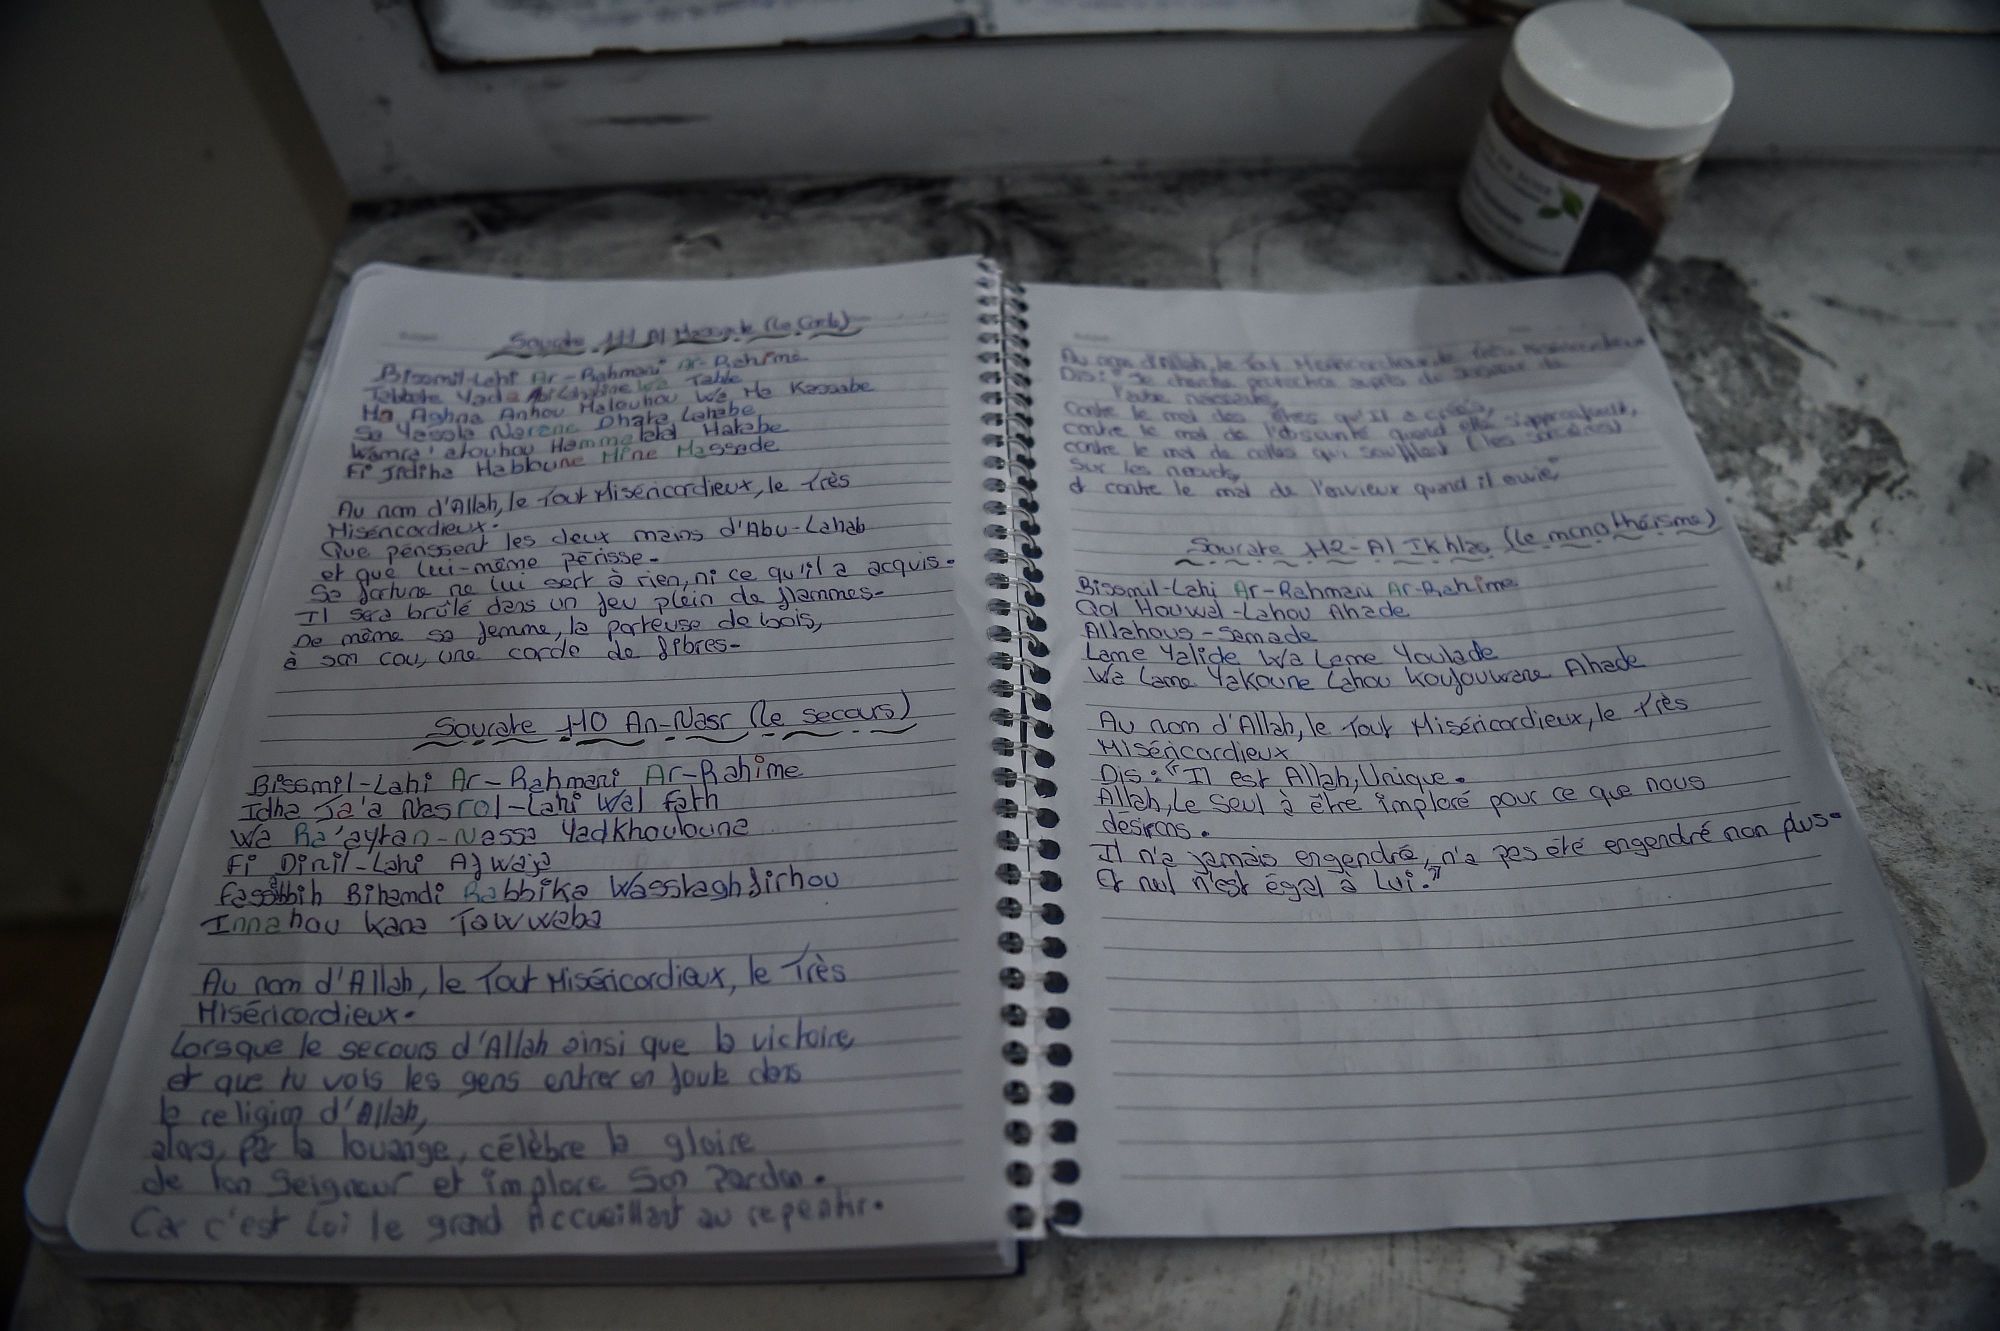 Sourate 111 Al Massade (La Corde)
Bissmil-Lahi Ar-Rahmani Ar-Rahime
Tabbate Yada Abi Lahabine Wa Tabbe
Ma Aghna Anhou Malouhou Wa Ma Kassabe
Sa Yassla Narane Dhata Lahabe
Wamra'atouhou Hammalatal Hatabe
Fi Jidiha Habloune Mine Massade
Au nom d'Allah, le Tout Miséricordieux, le Très
Miséricordieux.
Que périssent les deux mains d'Abu-Lahab
et que lui-même périsse.
Sa fortune ne lui sert à rien, ni ce qu'il a acquis.
Il sera brûlé dans un feu plein de flammes.
De même sa femme, la porteuse de bois,
à son cou, une corde de fibres.
Sourate 110 An-Nasr (le secours)
Bissmil-Lahi Ar-Rahmani Ar-Rahime
Idha Ja'a Nasrol-Lahi Wal fath
Wa Ra'aytan-Nassa Yadkhouloune
Fi Dinil-Lahi Afwaja
Fassabbih Bihamdi Rabbika Wasstaghfirhou
Innahou Kana Tawwaba
Au nom d'Allah, le Tout Miséricordieux, le Très
Miséricordieux.
Lorsque le secours d'Allah ainsi que la victoire,
et que tu vois les gens entrer en foule dans
la religion d'Allah,
alors, par la louange, célèbre la gloire
de ton Seigneur et implore Son Pardon.
Car c'est Lui le grand Accueillant au repentir.
Au nom d'Allah, le Tout Miséricordieux, le Très Miséricordieux
Dis: "Je cherche protection auprès du Seigneur de
l'aube naissante,
contre le mal des êtres qu'Il a créés,
contre le mal de l'obscurité quand elle s'approfondit,
contre le mal de celles qui soufflent (les sorcières)
sur les nœuds,
et contre le mal de l'envieux quand il envie"
Sourate 112-Al Ikhlas (le monothéisme)
Bissmil-Lahi Ar-Rahmani Ar-Rahime
Qol Houwal-Lahou Ahade
Allahous-Samade
Lame Yalide Wa Lame Youlade
Wa Lame Yakoune Lahou Koufouwane Ahade
Au nom d'Allah, le Tout Miséricordieux, le Très
Miséricordieux
Dis: "Il est Allah, Unique.
Allah, Le Seul à être imploré pour ce que nous
desirons.
Il n'a jamais engendré, n'a pas été engendré non plus.
Et nul n'est égal à Lui."